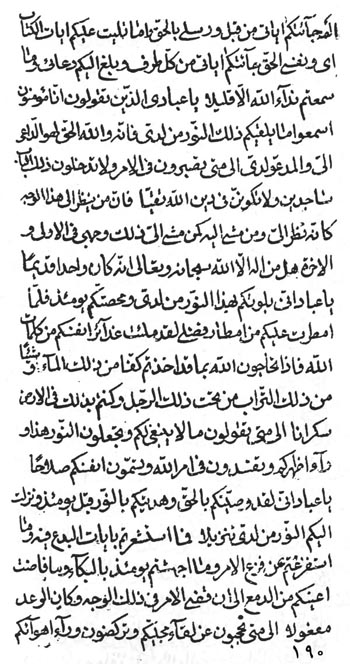 الم جآئتكم اياتى من قبل ورسلى بالحق واما تليت عليكم ايات الكتاب
اى ونفسى الحق جآئتكم اياتى من كل طرف وبلغ اليكم دعائى وما
سمعتم ندآء الله الا قليلا يا عبادى الذين تقولون انا مؤمنون
اسمعوا ما يلقيكم ذلك النور من لدى فانه والله الحق لهو الداعى
الى والمدعو لدى الى متى تصبرون فى الامر ولا تدخلون ذلك الباب
ساجدين ولا تكونن فى دين الله فان من ينظر الى هذا الوجه
كانه نظر الى ومن مشى اليه كمن مشى الى ذلك وجهى فى الاولى و
الاخرة هل من اله الا الله سبحانه وتعالى انه كان واحدا قديما
يا عباد انى بلوتكم بهذا النور من لدى ومحصتكم يومئذ فلما
امطرت عليكم من امطار فضلى لقد ملئت انفسكم من كلمات
الله فاذا تحاجون الله بما قد اخذتم كفا من ذلك المآء
من ذلك التراب من تحت ذلك الرجل وكنتم بذلك فى الارض
سكرانا الى متى تقولون ما لا ينبغى لكم وتجعلون النور هذا و
رآء اظهركم وتفسدون فى امر الله وتسمون انفسكم صلاحا
يا عباد انى لقد وصيتكم بالحق وهديتكم بالنور قبل يومئذ ونزلت
اليكم النور من لدى تنزيلا فما استشعرتم بايات البدع وما
استفرغتم عن فزع الامر وما اجهشتم يومئذ بالبكآء وما فاضت
اعينكم من الدمع الى ان قضى الامر فى ذلك الوجه وكان الوعد
مفعولا الى متى تحجبون عن لقآء محبكم وتركضون ورآء اهوآئكم
١٩٠